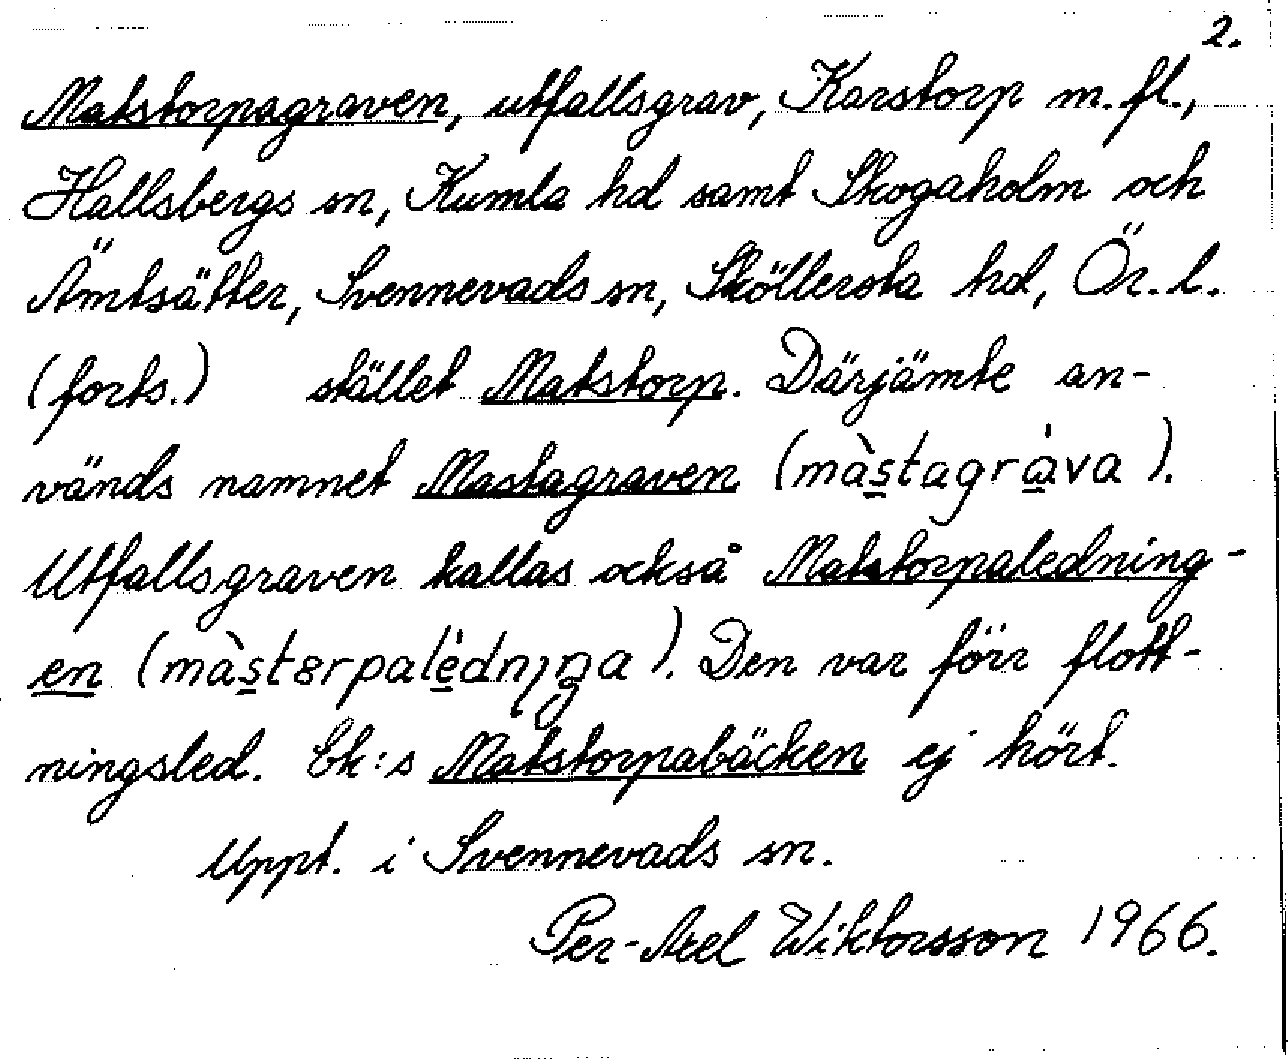 2.
Matstorpagraven, utfallsgrav, Karstorp m.fl.,
Hallsbergs sn, Kumla hd samt Skogaholm och
Ämtsätter, Svennevads sn, Sköllersta hd, Ör. l.
(forts.) stället Matstorp. Därjämte an-
vänds namnet Mastagraven (màs̲tagrà̲va).
Utfallsgraven kallas också Matstorpaledning-
en (màs̲tɘrpalè̲dnıŋa). Den var förr flott-
ningsled. Ek:s Matstorpabäcken ej hört.
Uppt. i Svennevads sn.
Per-Axel Wiktorsson 1966.